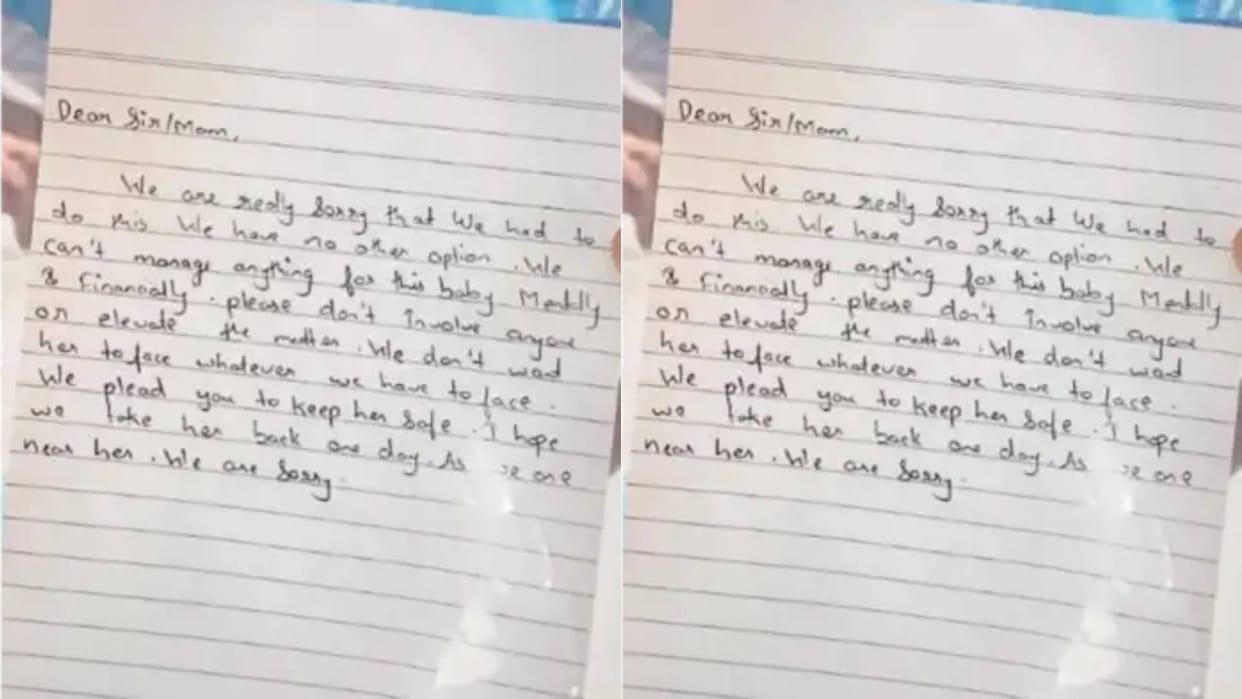 Dear Sir/Mam,
We are really Sorry that We had to
do this We have no other option. We
can't manage anything for this baby Mentlly
& Financially. please don't Involve anyone
or elevate the matter. We don't want
her to face whatever we have to face.
We plead you to keep her Safe. I hope
we take her back one day. As are
near her. We are Sorry.
Dear Sir/Mam,
We are really Sorry that We had to
do this We have no other option. We
can't manage anything for this baby Mentlly
& Financially. please don't Involve anyone
or elevate the matter. We don't want
her to face whatever we have to face.
We plead you to keep her Safe. I hope
we take her back one day. As are
near her. We are Sorry.